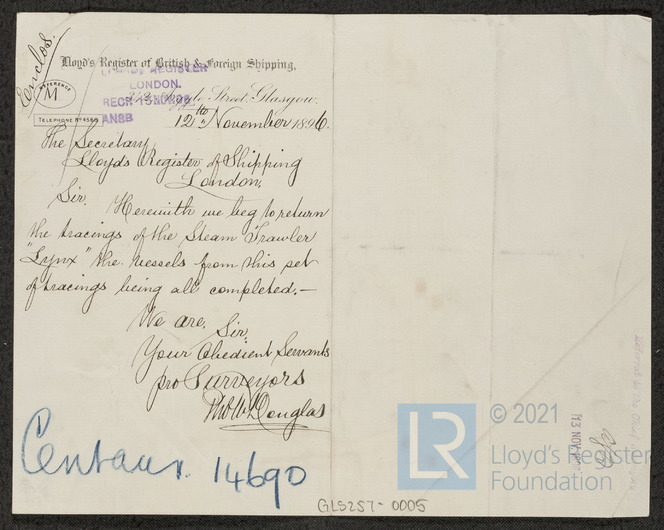 Enclos.
Lloyd's Register of British & Foreign Shipping,
REFERENCE
M
LONDON.
RECD 13 NOV 96
ANSD
Street, Glasgow.
TELEPHONE Nº 4588
12th November 1896.
The Secretary,
Lloyds Register of Shipping
London.
Sir. Herewith we beg to return
the tracings of the Steam Trawler
"Lynx" the vessels from this set
of tracings being all completed.—
We are, Sir,
Your Obedient Servants
pro Surveyors
Douglas
Centaur. 14690
GLS257-0005
LR
© 2021
Lloyd's Register
Foundation
13 NOV